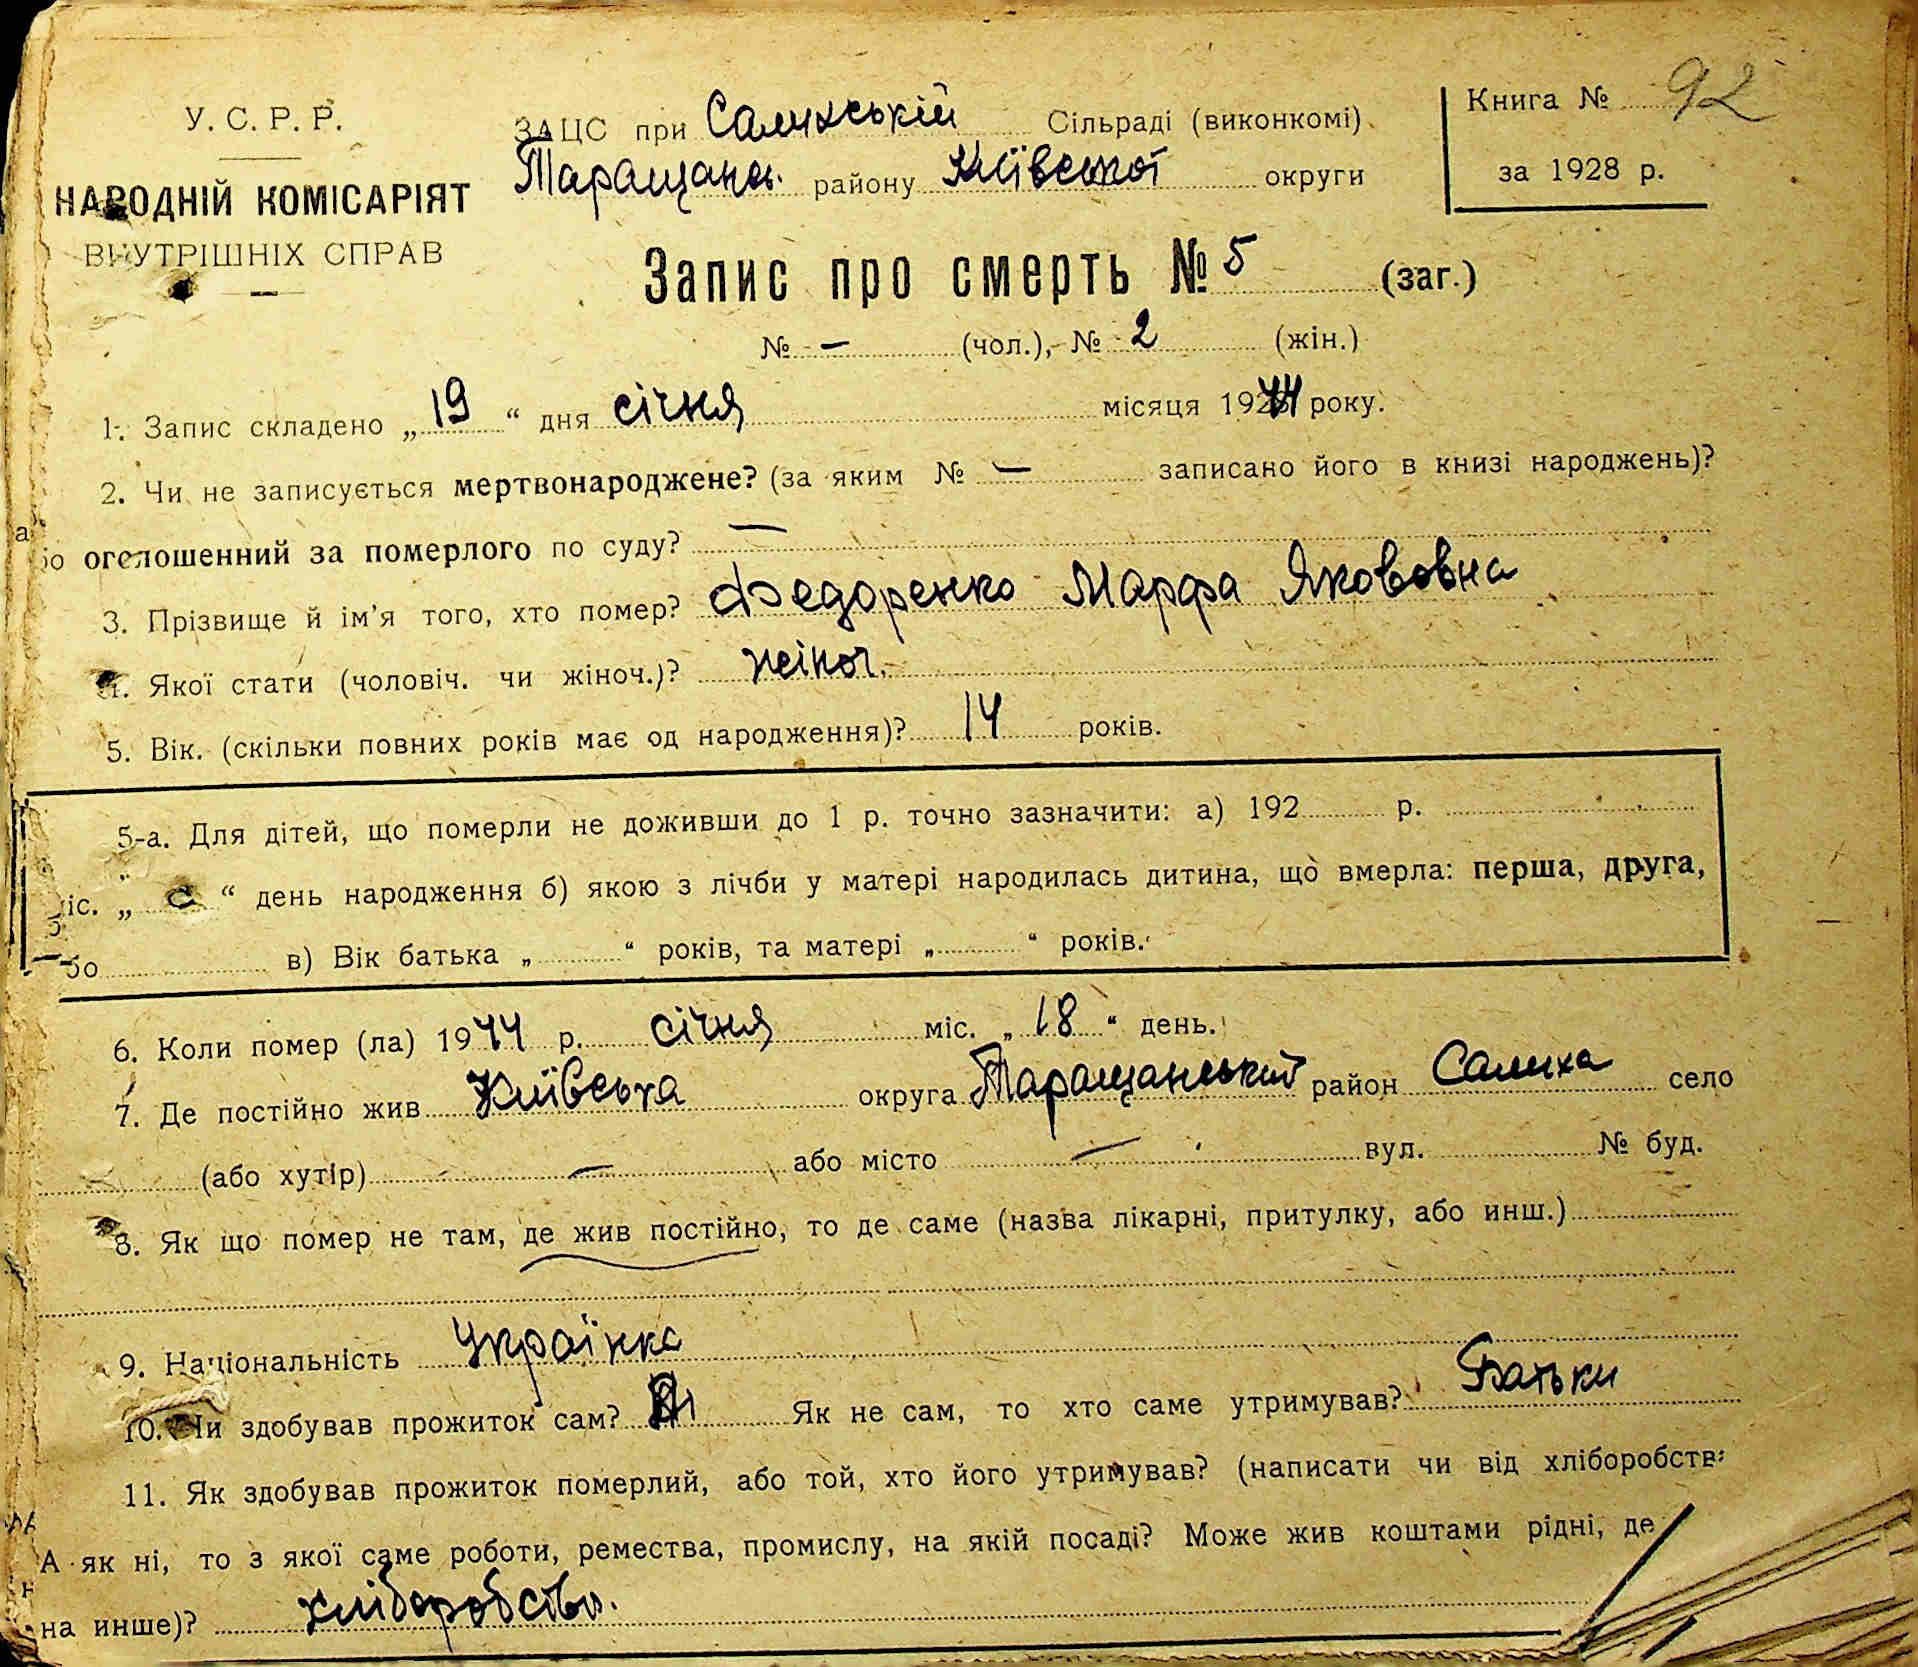 У. С. Р. Р.
НАРОДНІЙ КОМІСАРІЯТ
ВНУТРІШНІХ СПРАВ
ЗАЦС при Салиській Сільраді (виконкомі)
Таращанськ. району Київської округи
Книга № 92
за 1928 р.
Запис про смерть № 5 (заг.)
№ — (чол.), № 2 (жін.)
1. Запис складено „ 19 “ дня січня місяця 1944 року.
2. Чи не записується мертвонароджене? (за яким № — записано його в книзі народжень)?
або оголошенний за померлого по суду? —
3. Прізвище й ім'я того, хто помер? Федоренко Марфа Якововна
4. Якої стати (чоловіч. чи жіноч.)? жіноч.
5. Вік. (скільки повних років має од народження)? 14 років.
5-а. Для дітей, що померли не доживши до 1 р. точно зазначити: а) 192 р.
міс. „ “ день народження б) якою з лічби у матері народилась дитина, що вмерла: перша, друга,
або в) Вік батька „ “ років, та матері „ “ років.
6. Коли помер (ла) 1944 р. січня міс. „ 18 “ день.
7. Де постійно жив Київська округа Таращанський район Салиха село
(або хутір) — або місто — вул. № буд.
8. Як що помер не там, де жив постійно, то де саме (назва лікарні, притулку, або инш.)
9. Національність Українка
10. Чи здобував прожиток сам? Ні Як не сам, то хто саме утримував? Батьки
11. Як здобував прожиток померлий, або той, хто його утримував? (написати чи від хліборобств
А як ні, то з якої саме роботи, ремества, промислу, на якій посаді? Може жив коштами рідні, де
на инше)? хліборобство.